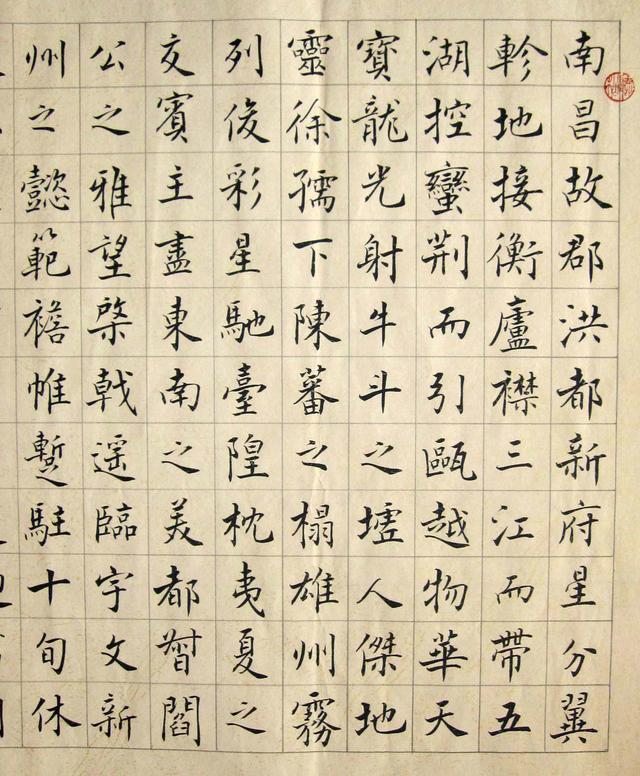 南昌故郡洪都新府星分翼
軫地接衡廬襟三江而帶五
湖控蠻荆而引甌越物華天
寶龍光射牛斗之墟人傑地
靈徐孺下陳蕃之榻雄州霧
列俊彩星馳臺隍枕夷夏之
交賓主盡東南之美都督閻
公之雅望棨戟遥臨宇文新
州之懿範襜帷暫駐十旬休